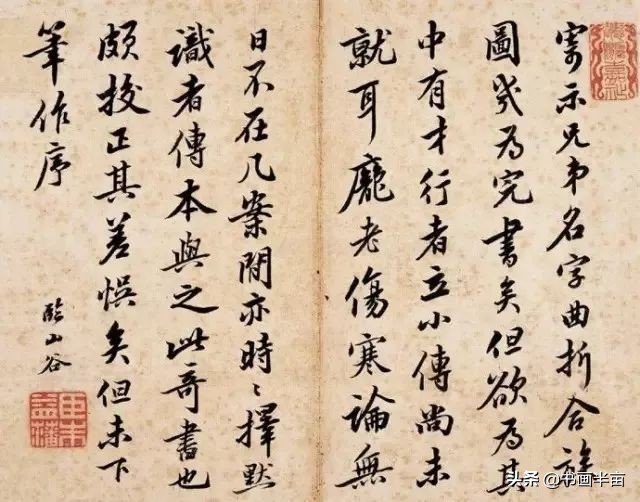 寄示兄弟名字曲折合族
圖幾為完書矣但欲為其
中有才行者立小傳尚未
就耳龐老傷寒論無
日不在几案間亦時〻擇默
識者傳本與之此奇書也
頗挍正其差悞矣但未下
筆作序
臨山谷
头条 @书画半亩